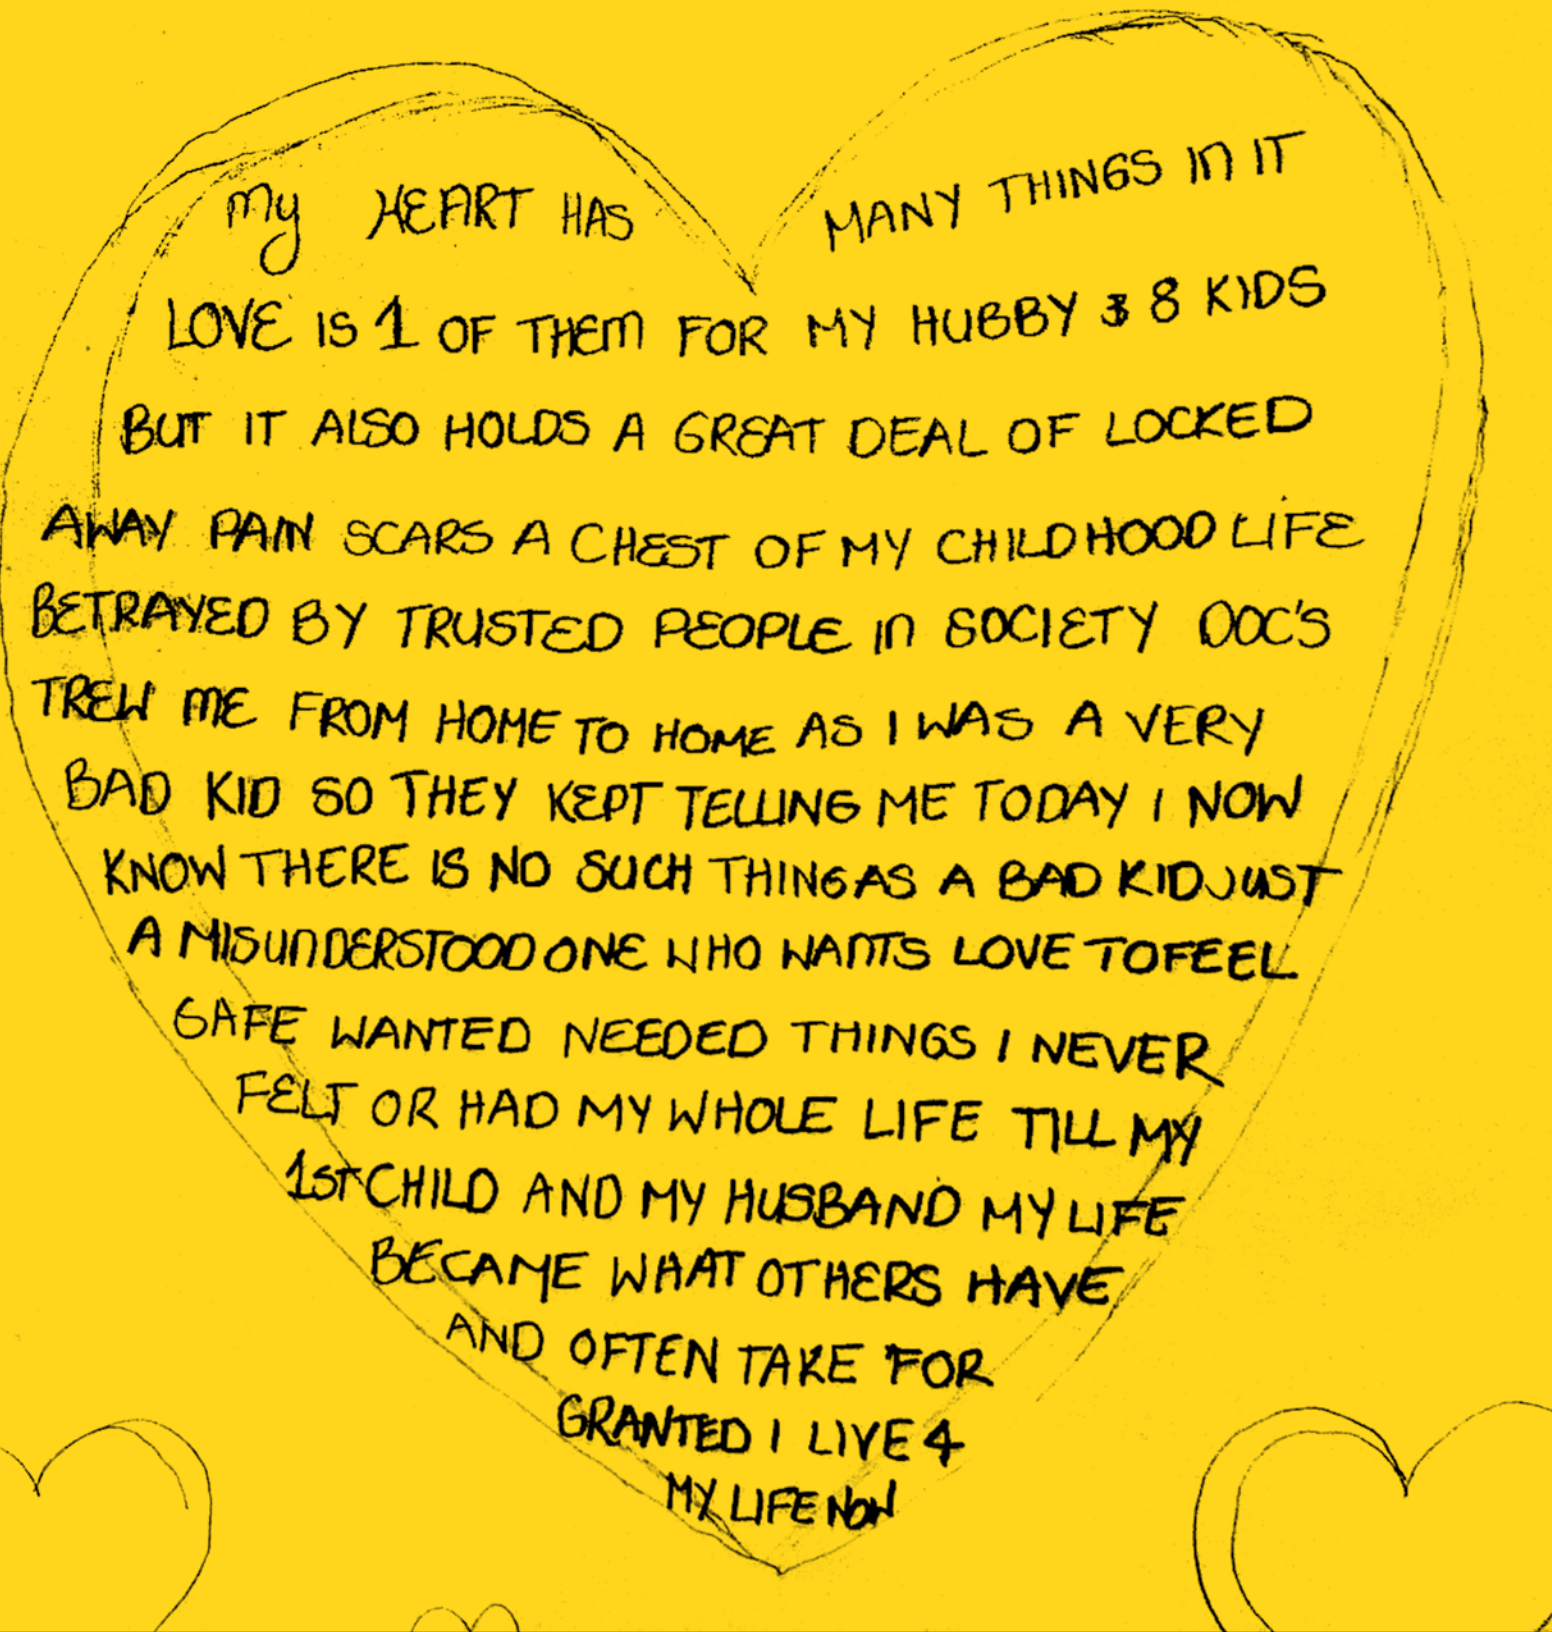 My HEART HAS MANY THINGS IN IT
LOVE IS 1 OF THEM FOR MY HUBBY & 8 KIDS
BUT IT ALSO HOLDS A GREAT DEAL OF LOCKED
AWAY PAIN SCARS A CHEST OF MY CHILDHOOD LIFE
BETRAYED BY TRUSTED PEOPLE IN SOCIETY DOC'S
TREW ME FROM HOME TO HOME AS I WAS A VERY
BAD KID SO THEY KEPT TELLING ME TODAY I NOW
KNOW THERE IS NO SUCH THING AS A BAD KID JUST
A MISUNDERSTOOD ONE WHO WANTS LOVE TO FEEL
SAFE WANTED NEEDED THINGS I NEVER
FELT OR HAD MY WHOLE LIFE TILL MY
1ST CHILD AND MY HUSBAND MY LIFE
BECAME WHAT OTHERS HAVE
AND OFTEN TAKE FOR
GRANTED I LIVE 4
MY LIFE NOW